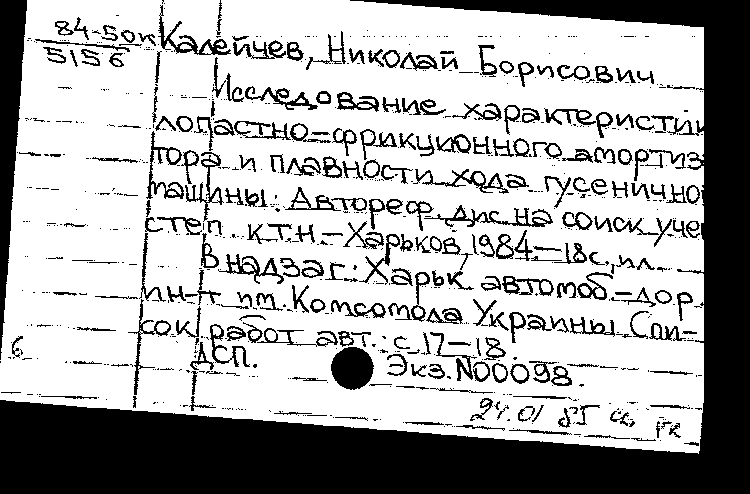 84-50к
5156
Калейчев, Николай Борисович
Исследование характеристик
лопастно-фрикционного амортиза
тора и плавности хода гусенично
машины: Автореф. дис. на соиск. уче
степ. к.т.н. - Харьков, 1984. - 18 с., ил.
В надзаг.: Харьк. автомоб.-дор.
ин-т им. Комсомола Украины. Спи-
сок работ авт.: с. 17-18.
ДСП. Экз. N00098.
6
24.01 85